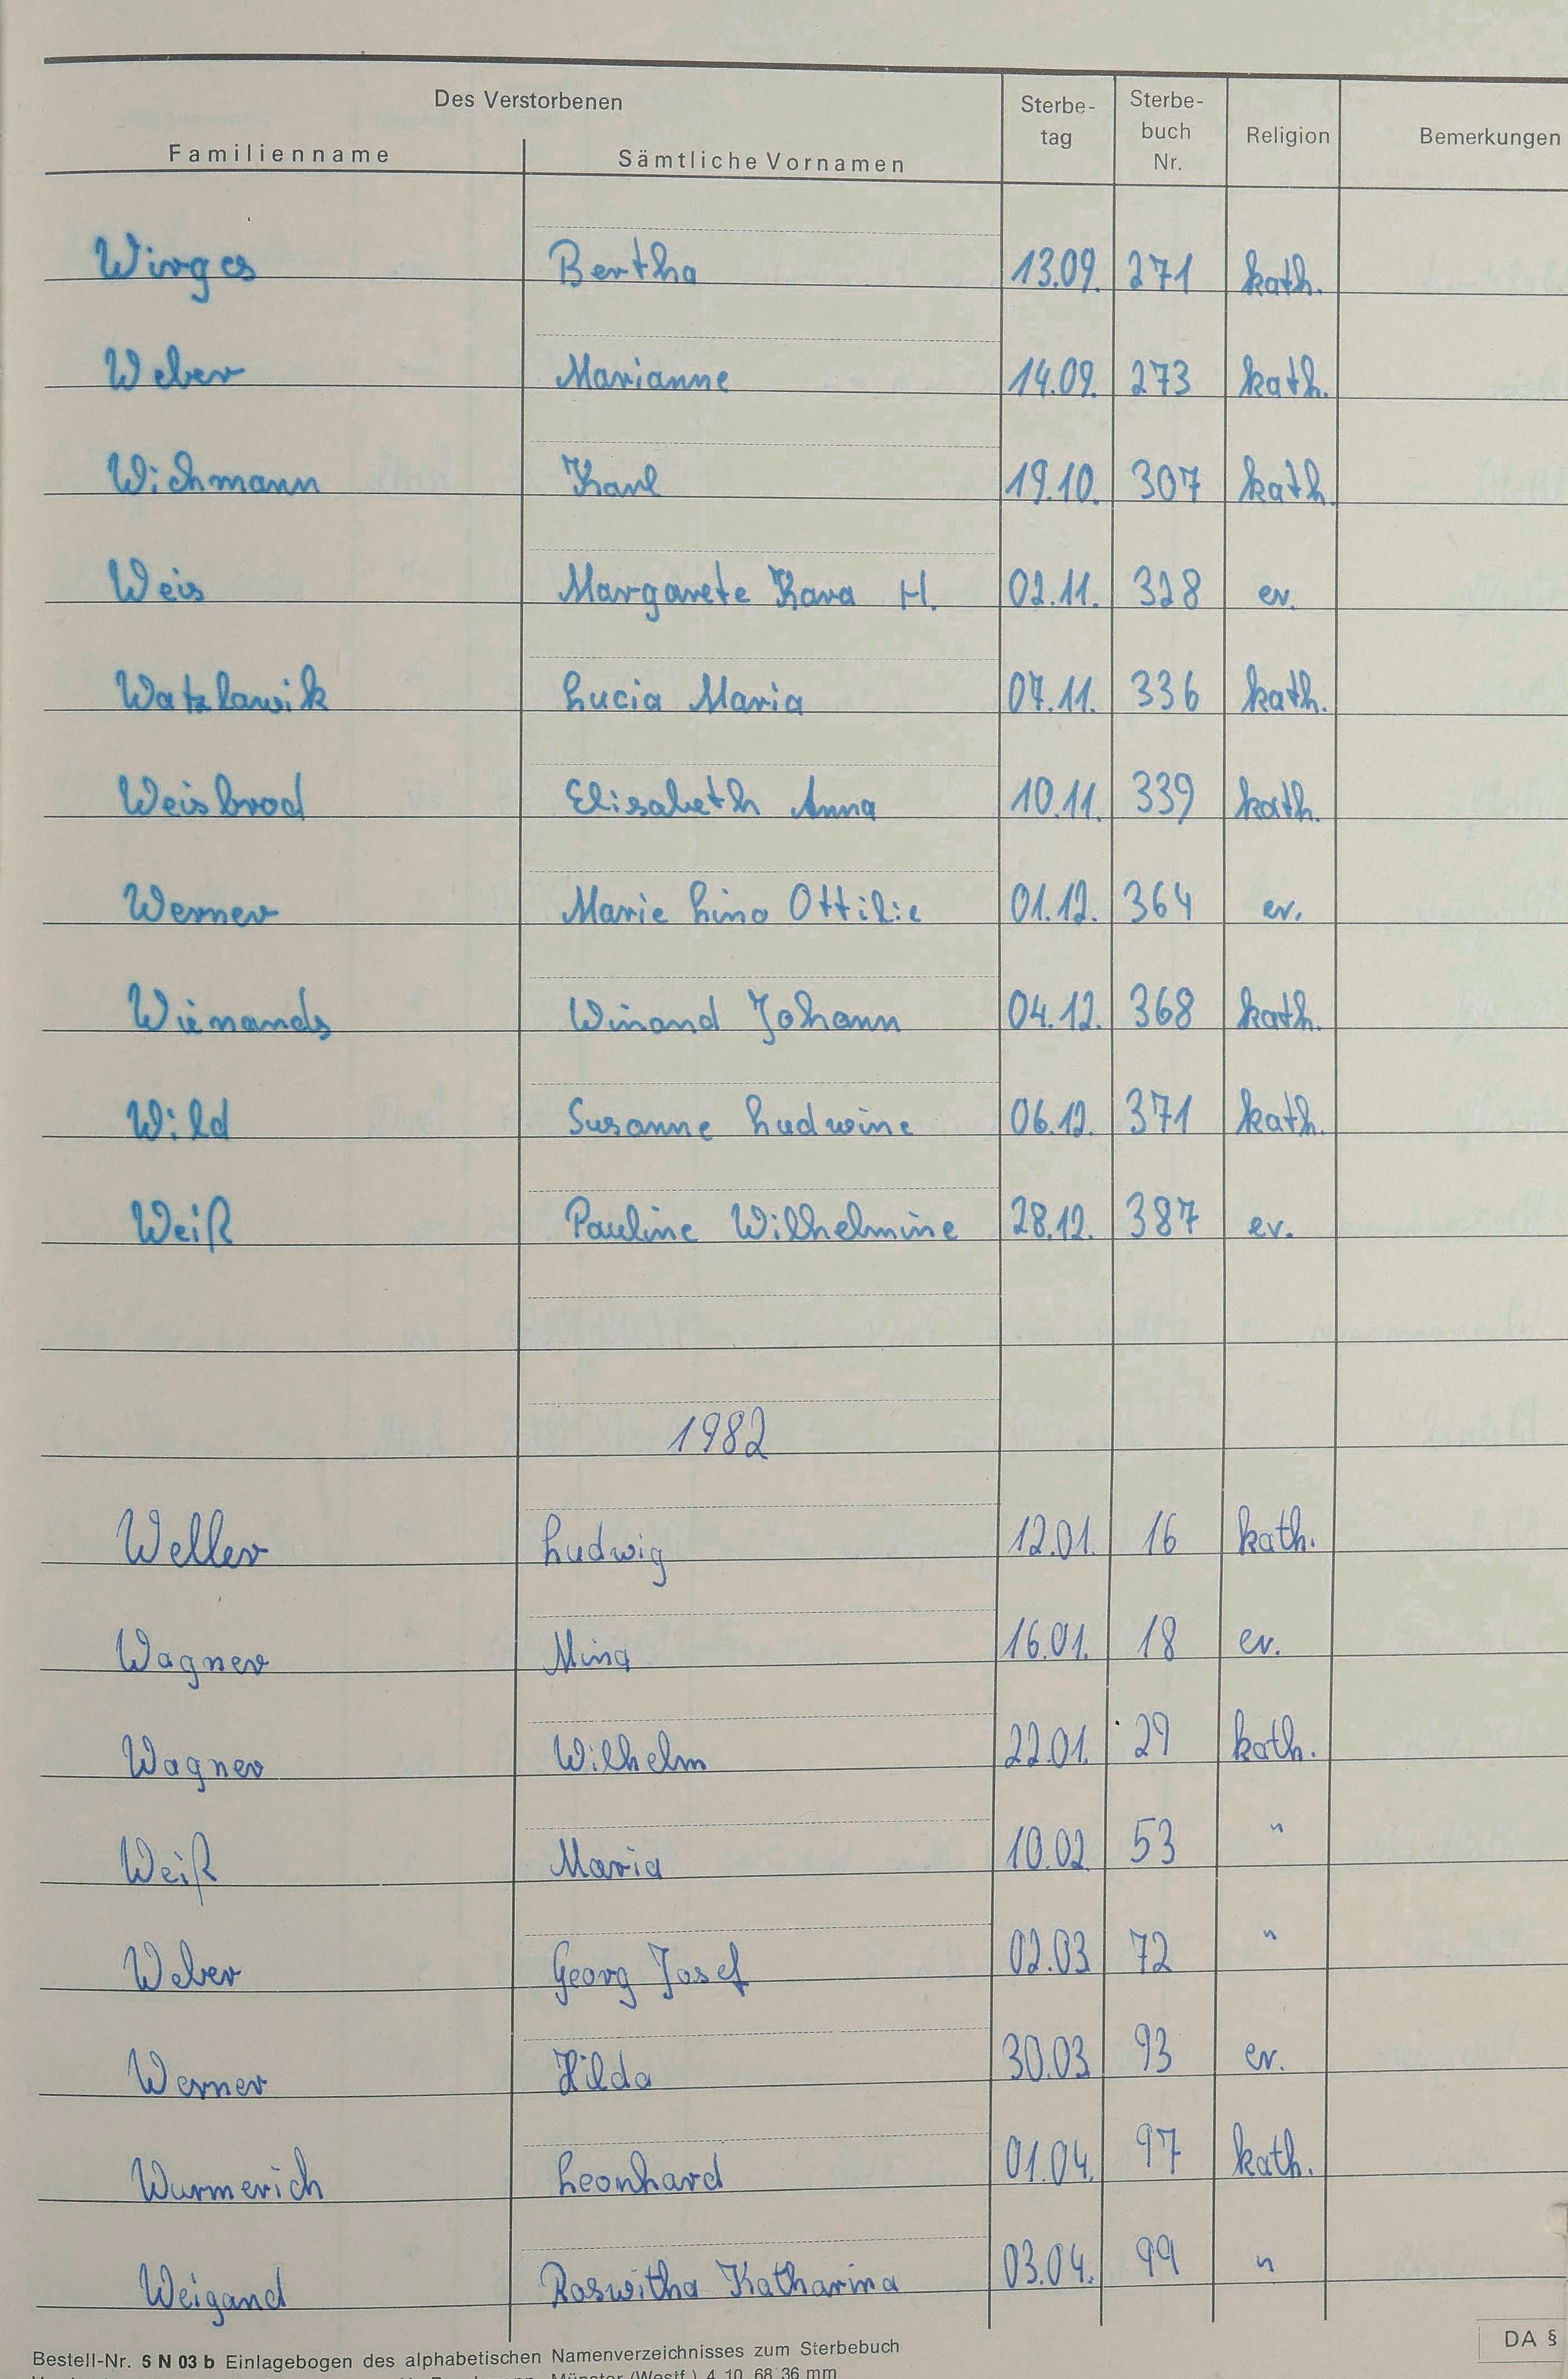 Des Verstorbenen
Familienname Sämtliche Vornamen Sterbe-tag Sterbe-buch Nr. Religion Bemerkungen
Wirges Bertha 13.09. 271 kath.
Weber Marianne 14.09. 273 kath.
Wichmann Karl 19.10. 307 kath.
Weis Margarete Klara H. 02.11. 328 ev.
Watzlawik Lucia Maria 07.11. 336 kath.
Weisbrod Elisabeth Anna 10.11. 339 kath.
Werner Marie Lina Ottilie 01.12. 364 ev.
Wienands Winand Johann 04.12. 368 kath.
Wild Susanne Ludwine 06.12. 371 kath.
Weiß Pauline Wilhelmine 28.12. 387 ev.
1982
Weller Ludwig 12.01. 16 kath.
Wagner Mina 16.01. 18 ev.
Wagner Wilhelm 22.01. 29 kath.
Weiß Maria 10.02 53 "
Weber Georg Josef 02.03 72 "
Werner Hilda 30.03 93 ev.
Wurmerich Leonhard 01.04. 97 kath.
Weigand Roswitha Katharina 03.04. 99 "
Bestell-Nr. 6 N 03 b Einlagebogen des alphabetischen Namenverzeichnisses zum Sterbebuch
DA §
Münster (Westf.) 4 10 68 36 mm